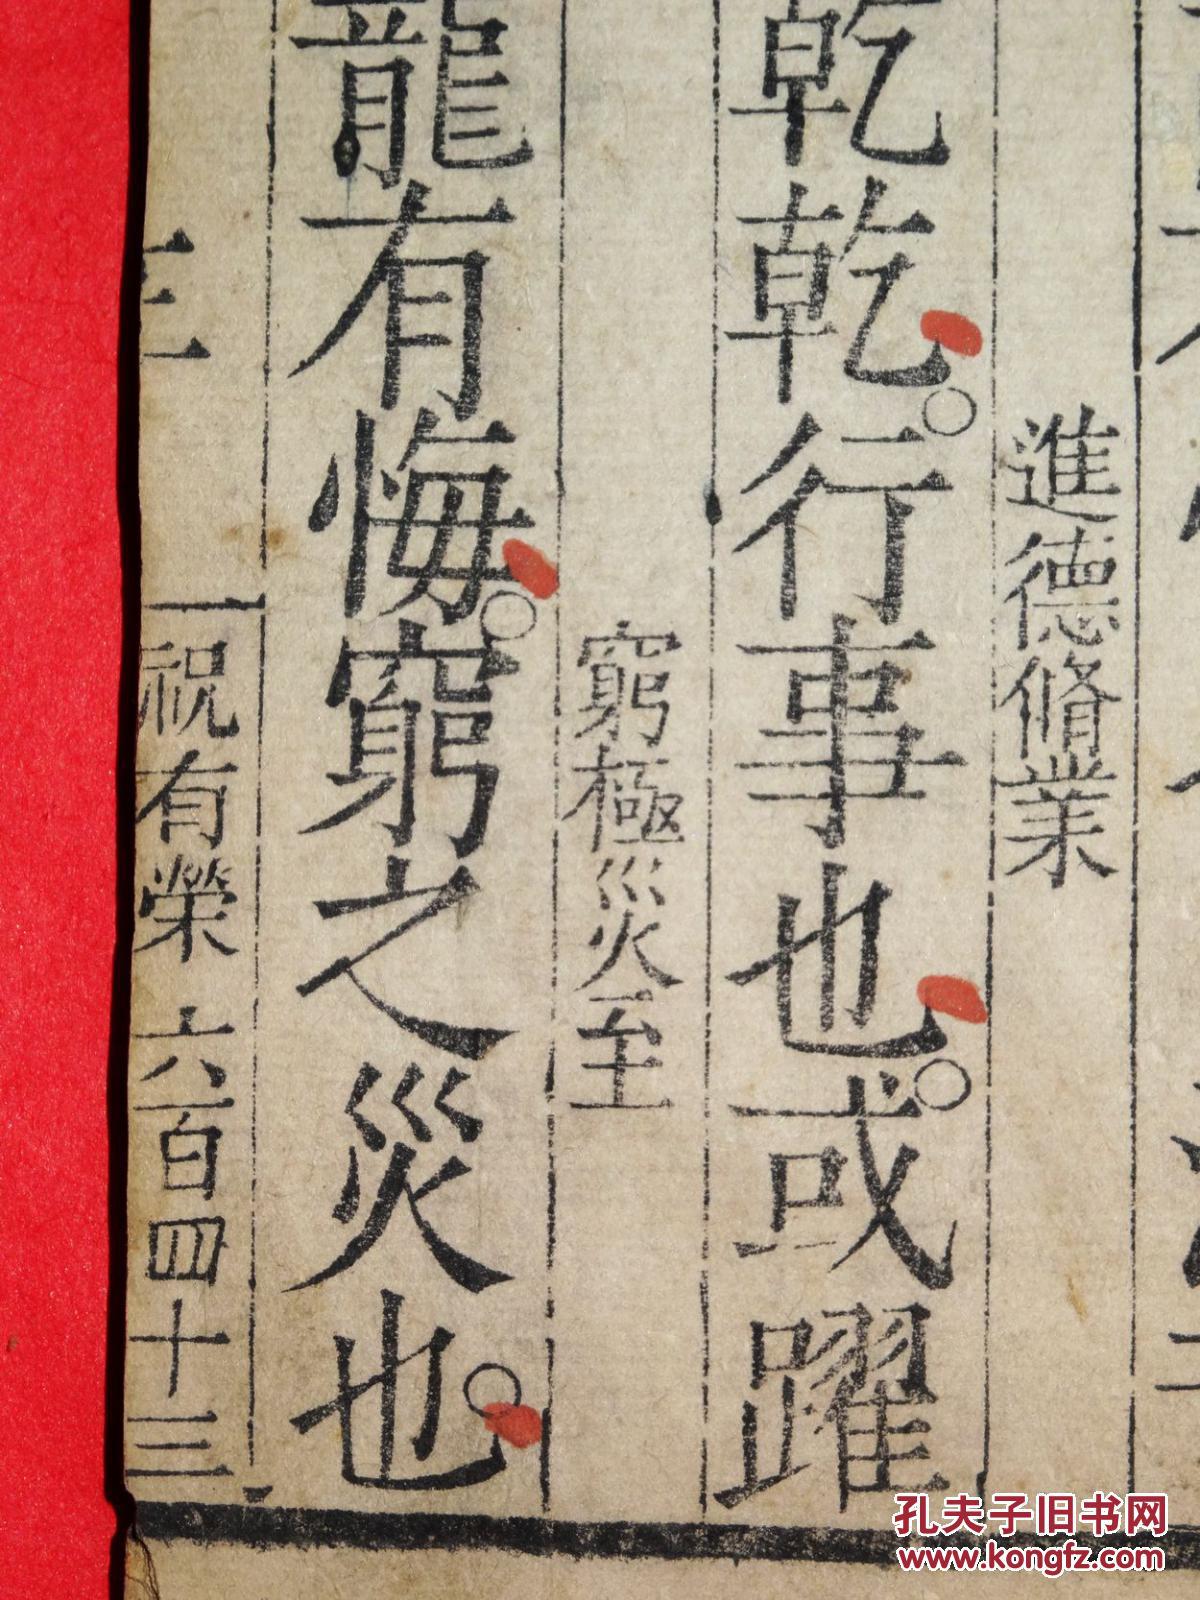 乾乾。行事也。或躍
進德脩業
龍有悔。窮之災也。
窮極災至
祝有榮 六百四十三
孔夫子旧书网
www.kongfz.com